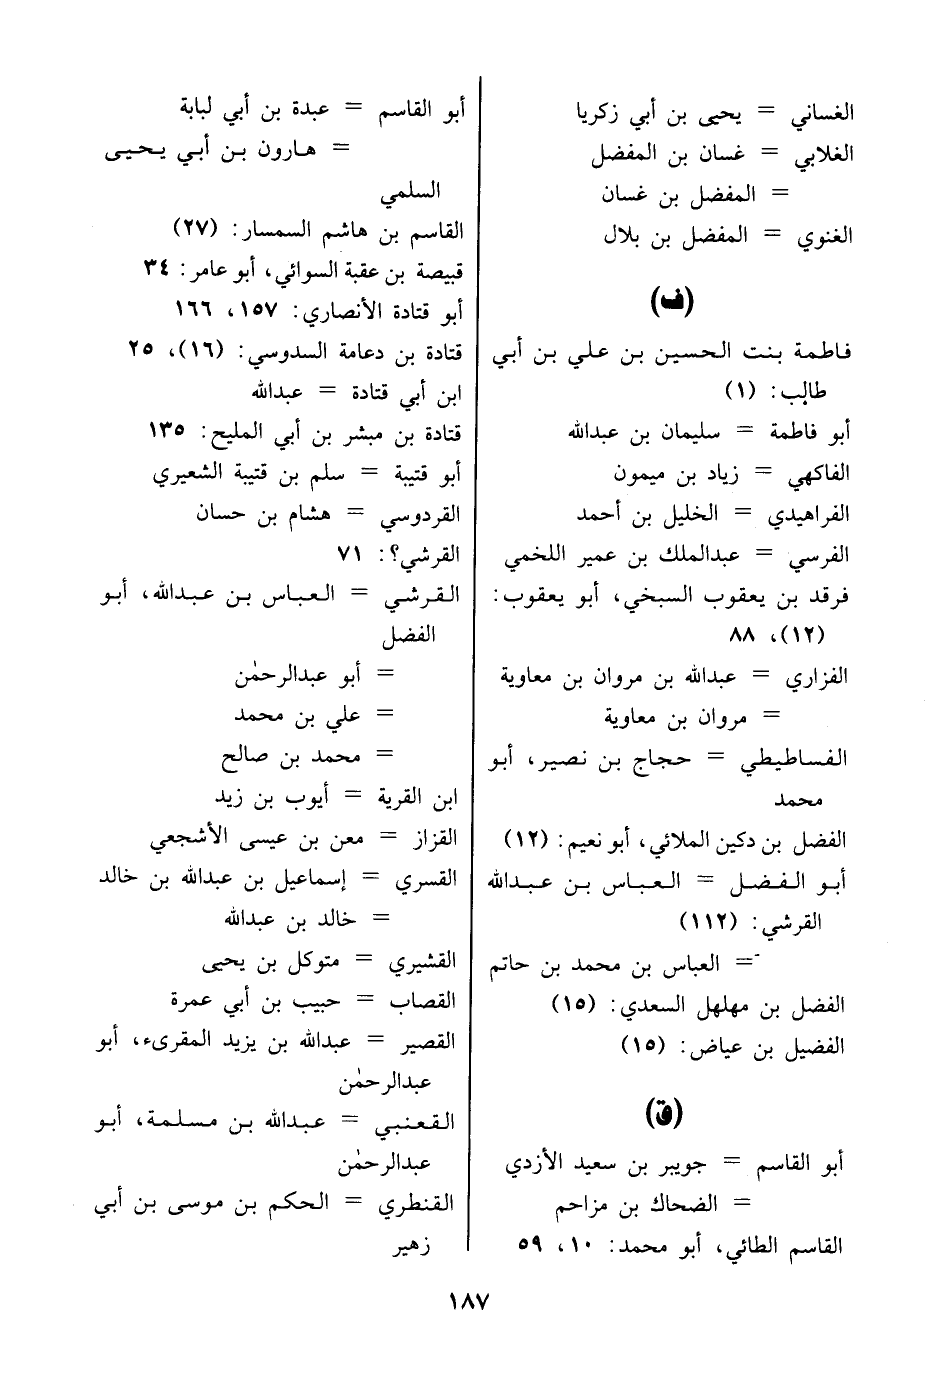 الغساني = يحيى بن أبي زكريا
الغلابي = غسان بن المفضل
= المفضل بن غسان
الغنوي = المفضل بن بلال
(ف)
فاطمة بنت الحسين بن علي بن أبي
طالب: (١)
أبو فاطمة = سليمان بن عبدالله
الفاكهي = زياد بن ميمون
الفراهيدي = الخليل بن أحمد
الفرسي = عبدالملك بن عمير اللخمي
فرقد بن يعقوب السبخي، أبو يعقوب:
(١٢)، ٨٨
الفزاري = عبدالله بن مروان بن معاوية
= مروان بن معاوية
الفساطيطي = حجاج بن نصير، أبو
محمد
الفضل بن دكين الملائي، أبو نعيم: (١٢)
أبو الفضل = العباس بن عبدالله
القرشي: (١١٢)
= العباس بن محمد بن حاتم
الفضل بن مهلهل السعدي: (١٥)
الفضيل بن عياض: (١٥)
(ق)
أبو القاسم = جويبر بن سعيد الأزدي
= الضحاك بن مزاحم
القاسم الطائي، أبو محمد: ١٠، ٥٩
أبو القاسم = عبدة بن أبي لبابة
= هارون بن أبي يحيى
السلمي
القاسم بن هاشم السمسار: (٢٧)
قبيصة بن عقبة السوائي، أبو عامر: ٣٤
أبو قتادة الأنصاري: ١٥٧، ١٦٦
قتادة بن دعامة السدوسي: (١٦)، ٢٥
ابن أبي قتادة = عبدالله
قتادة بن مبشر بن أبي المليح: ١٣٥
أبو قتيبة = سلم بن قتيبة الشعيري
القردوسي = هشام بن حسان
القرشي؟: ٧١
القرشي = العباس بن عبدالله، أبو
الفضل
= أبو عبدالرحمٰن
= علي بن محمد
= محمد بن صالح
ابن القرية = أيوب بن زيد
القزاز = معن بن عيسى الأشجعي
القسري = إسماعيل بن عبدالله بن خالد
= خالد بن عبدالله
القشيري = متوكل بن يحيى
القصاب = حبيب بن أبي عمرة
القصير = عبدالله بن يزيد المقرىء، أبو
عبدالرحمٰن
القعنبي = عبدالله بن مسلمة، أبو
عبدالرحمٰن
القنطري = الحكم بن موسى بن أبي
زهير
١٨٧